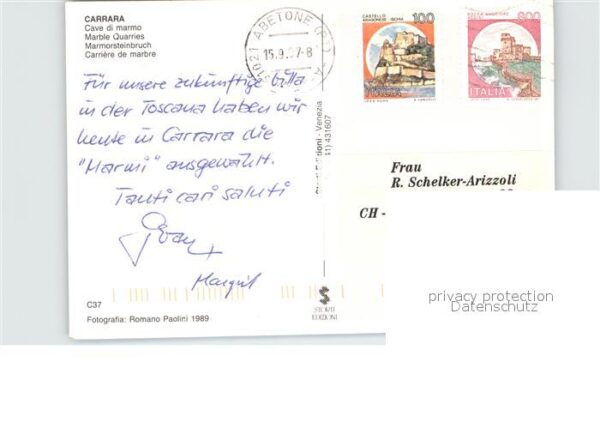 CARRARA
Cave di marmo
Marble Quarries
Marmorsteinbruch
Carrière de marbre
ABETONE (PT)
15.9.97-8
CASTELLO
ARAGONESE ISCHIA
100
ITALIA
Für unsere zukünftige Villa
in der Toscana haben wir
heute in Carrara die
"Marmi" ausgewählt.
Tanti cari saluti
Margrit
Edizioni - Venezia
431607
Frau
R. Schelker-Arizzoli
CH -
C37
Fotografia: Romano Paolini 1989
STORTI
EDIZIONI
privacy protection
Datenschutz